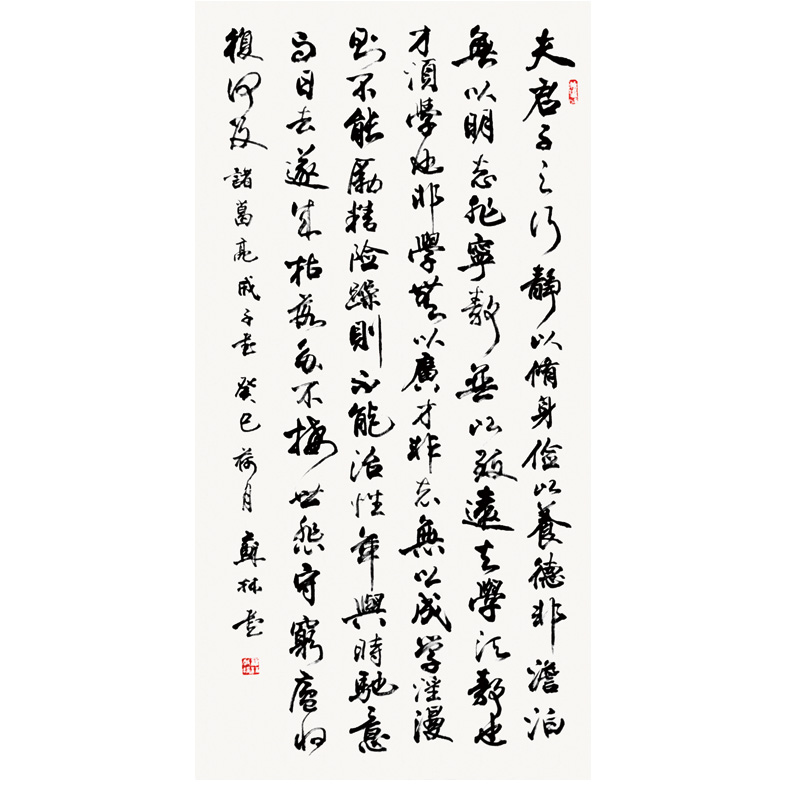 夫君子之行靜以脩身俭以養德非澹泊
無以明志非寧靜無以致遠夫學須靜也
才須學也非學無以廣才非志無以成學淫漫
則不能勵精险躁則不能治性年與時馳意
与日去遂成枯落多不接世悲守窮廬將
復何及 諸葛亮戒子書 癸巳荷月 蘇林書